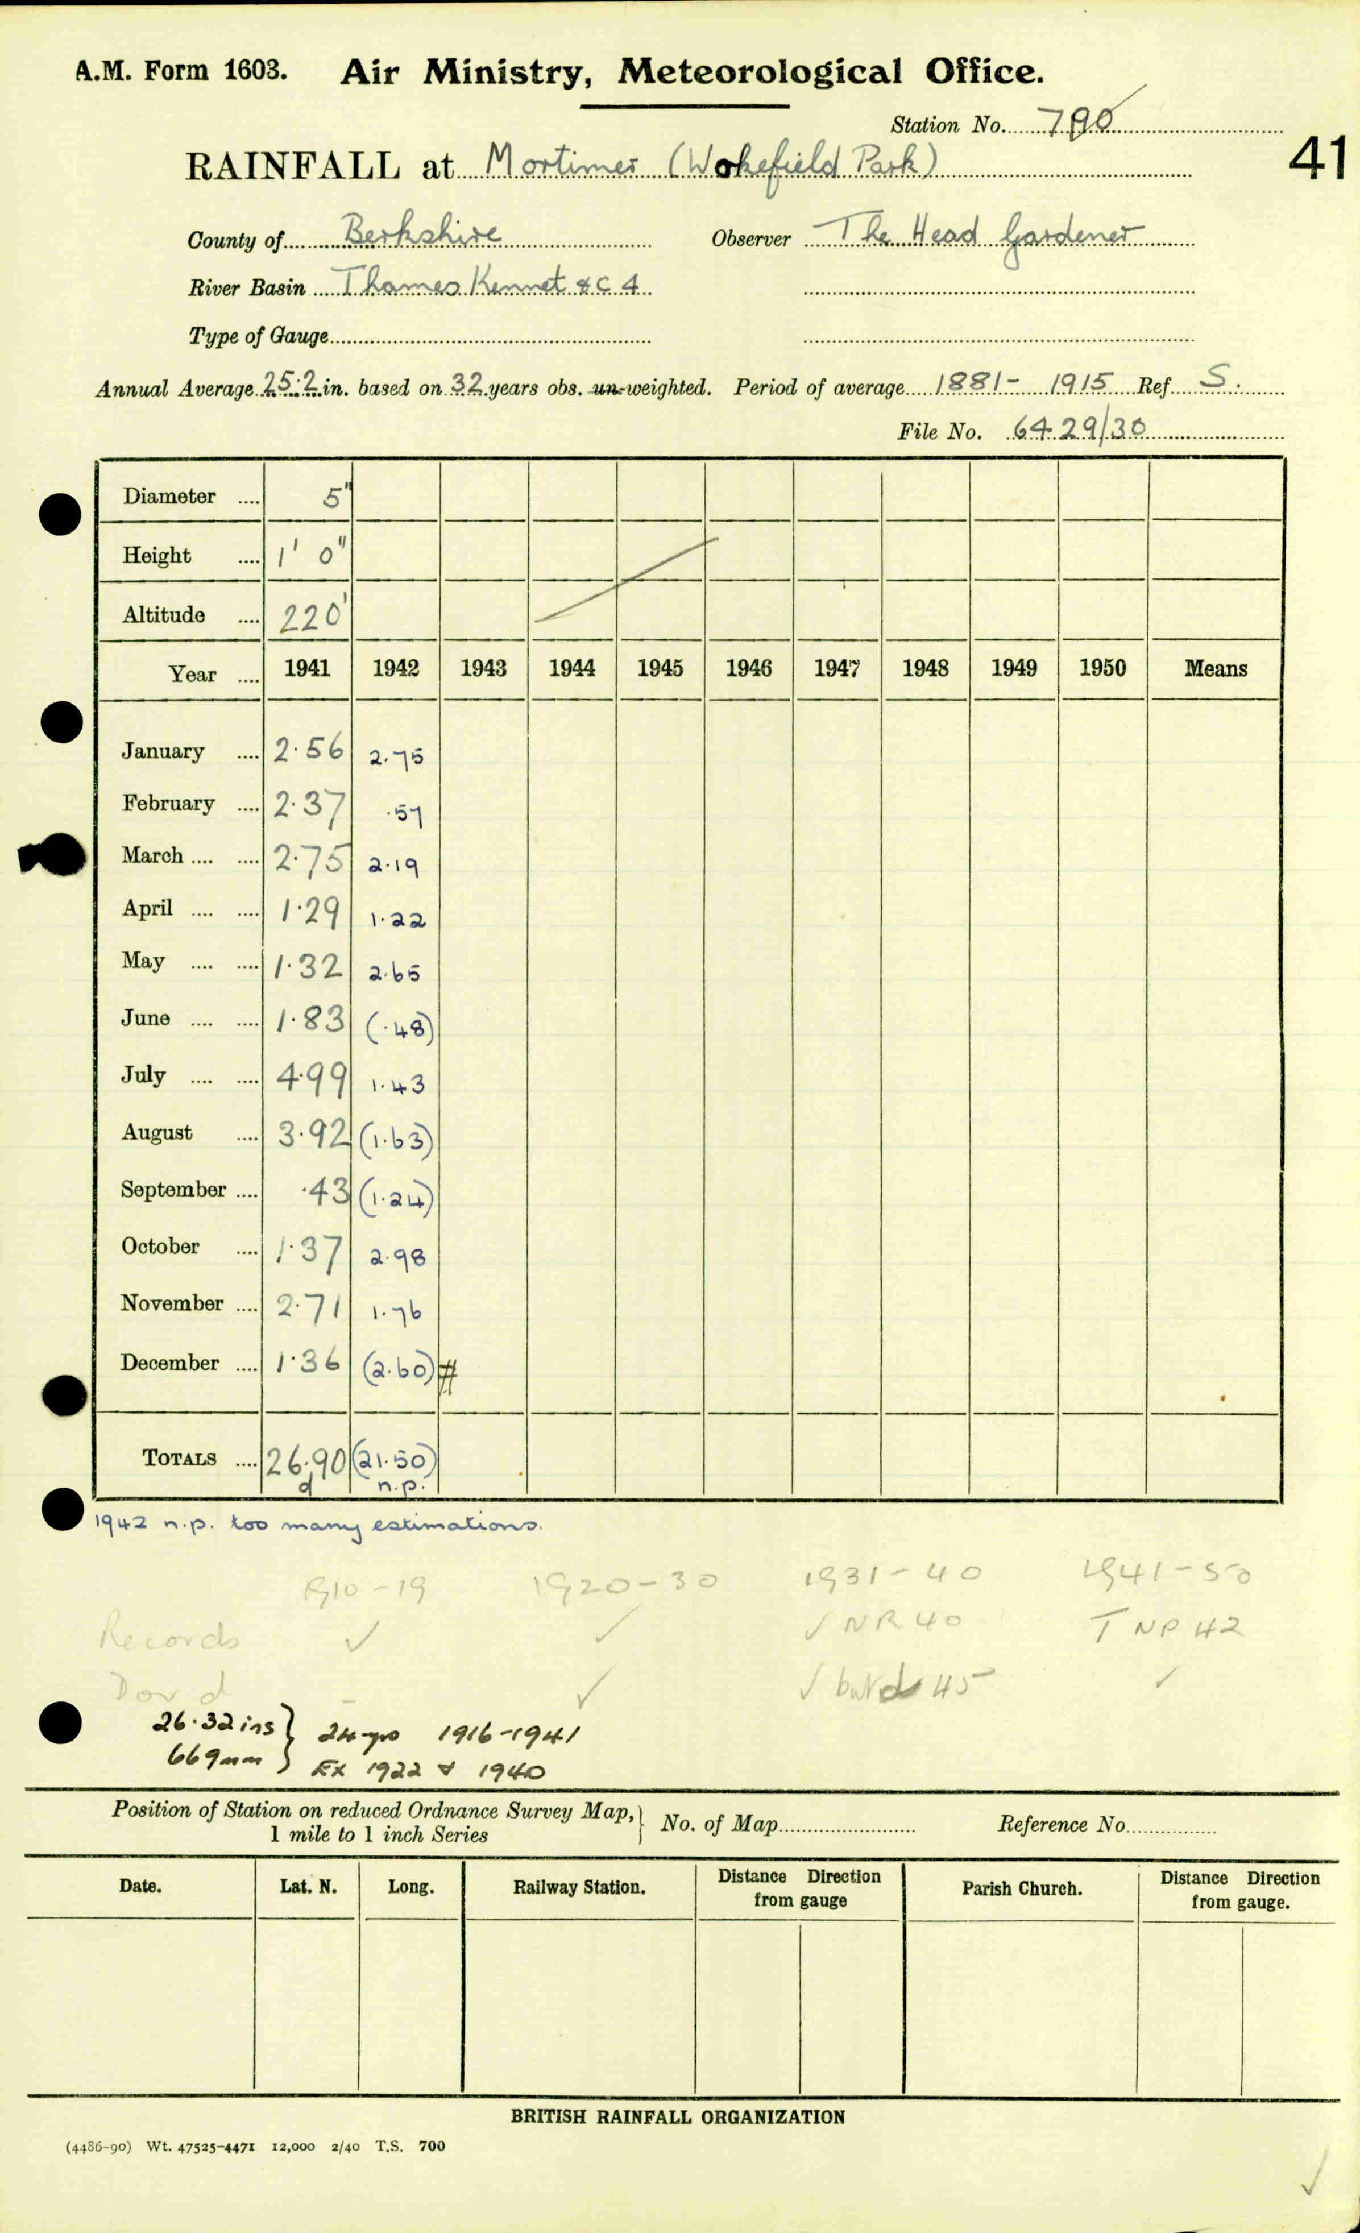 A.M. Form 1603. Air Ministry, Meteorological Office.
Station No. 790
41
RAINFALL at Mortimer (Wokefield Park)
County of Berkshire Observer The Head Gardener
River Basin Thames Kennet &c 4
Type of Gauge
Annual Average 25.2 in. based on 32 years obs. un-weighted. Period of average 1881- 1915 Ref S.
File No. 6429/30
Diameter .... 5"
Height .... 1' 0"
Altitude .... 220'
Year .... 1941 1942 1943 1944 1945 1946 1947 1948 1949 1950 Means
January .... 2.56 2.75
February .... 2.37 .57
March .... .... 2.75 2.19
April .... .... 1.29 1.22
May .... .... 1.32 2.65
June .... .... 1.83 (.48)
July .... .... 4.99 1.43
August .... 3.92 (1.63)
September .... .43 (1.24)
October .... 1.37 2.98
November .... 2.71 1.76
December .... 1.36 (2.60) #
TOTALS .... 26.90 (21.50)
d n.p.
1942 n.p. too many estimations.
1910-19 1920-30 1931-40 1941-50
Records ✓ ✓ ✓ NR 40 T NP 42
D or d - ✓ ✓ but d 45 ✓
26.32 ins } 24 yrs 1916-1941
669mm } Ex 1922 & 1940
Position of Station on reduced Ordnance Survey Map, } No. of Map Reference No.
1 mile to 1 inch Series
Date. Lat. N. Long. Railway Station. Distance Direction from gauge Parish Church. Distance Direction from gauge.
BRITISH RAINFALL ORGANIZATION
(4486-90) Wt. 47525-4471 12,000 2/40 T.S. 700